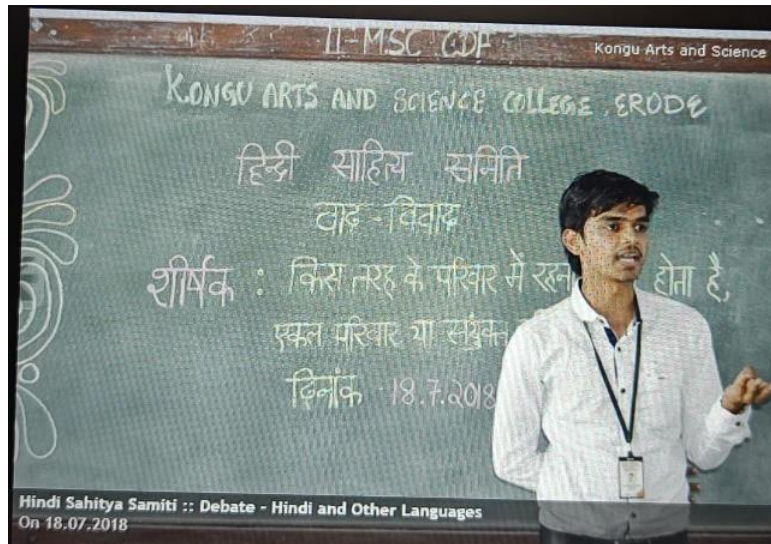 II-MSC CDF
Kongu Arts and Science
KONGU ARTS AND SCIENCE COLLEGE, ERODE
हिन्दी साहित्य समिति
वाद-विवाद
शीर्षक : किस तरह के परिवार में होता है,
एकल परिवार या संयुक्त
दिनांक 18.7.2018
Hindi Sahitya Samiti :: Debate - Hindi and Other Languages
On 18.07.2018